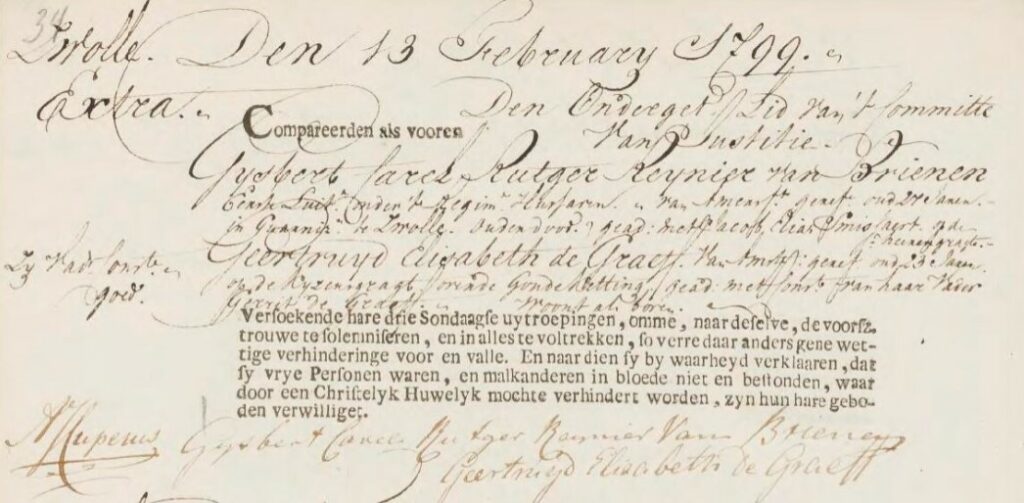 34
Zwolle. Den 13 February 1799.
Extra. Den Onderget. Lid van 't Committe
Compareerden als vooren van Justitie
Gysbert Carel Rutger Reynier van Brienen
Eerste Luit. onder 't Regim. Husaren van Amersf. geref. oud 27 Jaren
in Guarniz. te Zwolle. Ouders dood. gead. met Jacob Elias op de
Heerengragt.
Geertruyd Elisabeth de Graeff. van Amst. geref. oud 23 Jaren
Zy vad. Const. op de Kyzersgragt gead. met Const. van haar Vader
goed. Gerrit de Graeff. Woont als boven.
Versoekende hare drie Sondaagse uytroepingen, omme, naar deselve, de voorsz.
trouwe te solemniseren, en in alles te voltrekken, so verre daar anders gene wet-
tige verhinderinge voor en valle. En naar dien sy by waarheyd verklaaren, dat
sy vrye Personen waren, en malkanderen in bloede niet en bestonden, waar
door een Christelyk Huwelyk mochte verhindert worden, zyn hun hare gebo-
den verwilliget.
Gysbert Carel Rutger Reynier Van Brienen
Geertruyd Elisabeth de Graeff